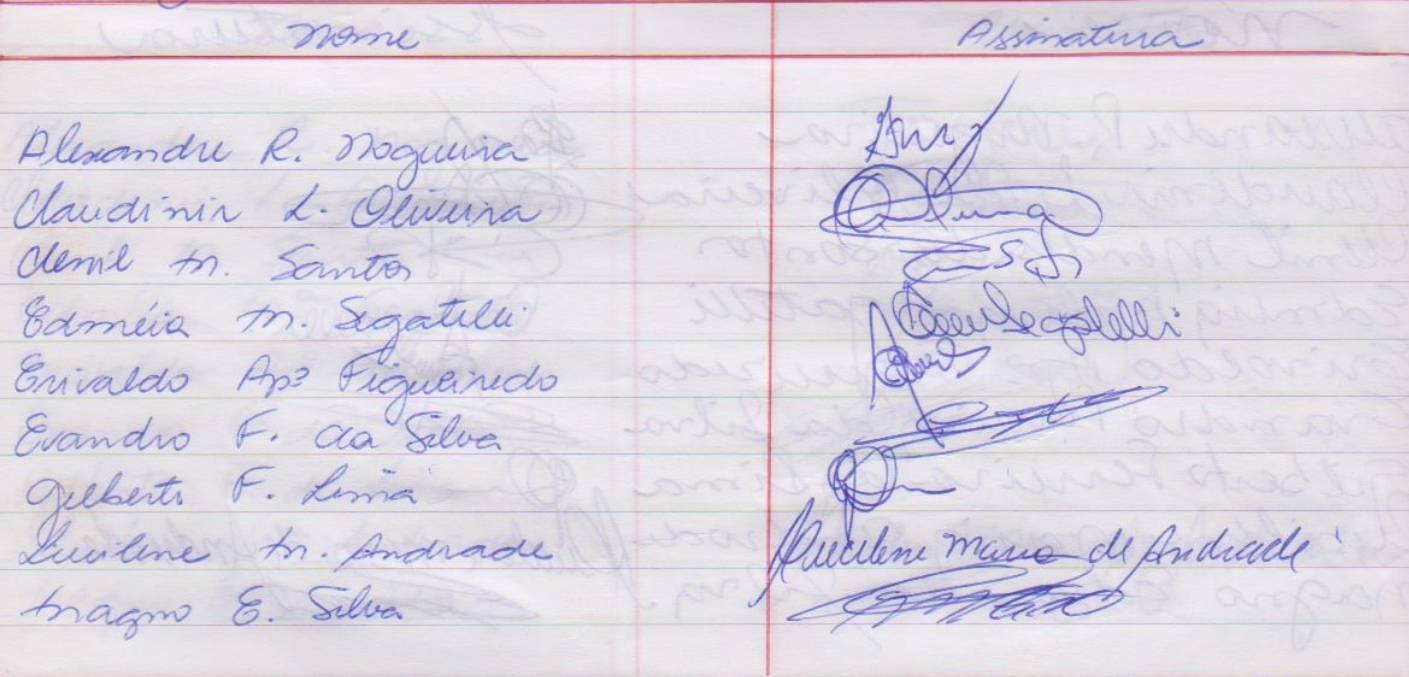 Nome Assinatura
Alexandre R. Nogueira
Claudinir L. Oliveira
Clenil M. Santos
Edméia M. Segatelli Segatelli
Erivaldo Apº Figueiredo
Evandro F. da Silva
Gilberto F. Lima
Lucilene M. Andrade Lucilene Maria de Andrade
Magno E. Silva